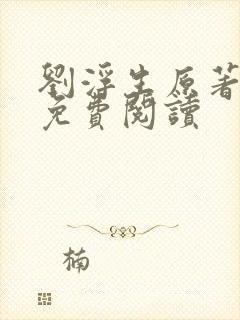 劉浮生原著
免費閱讀
楠